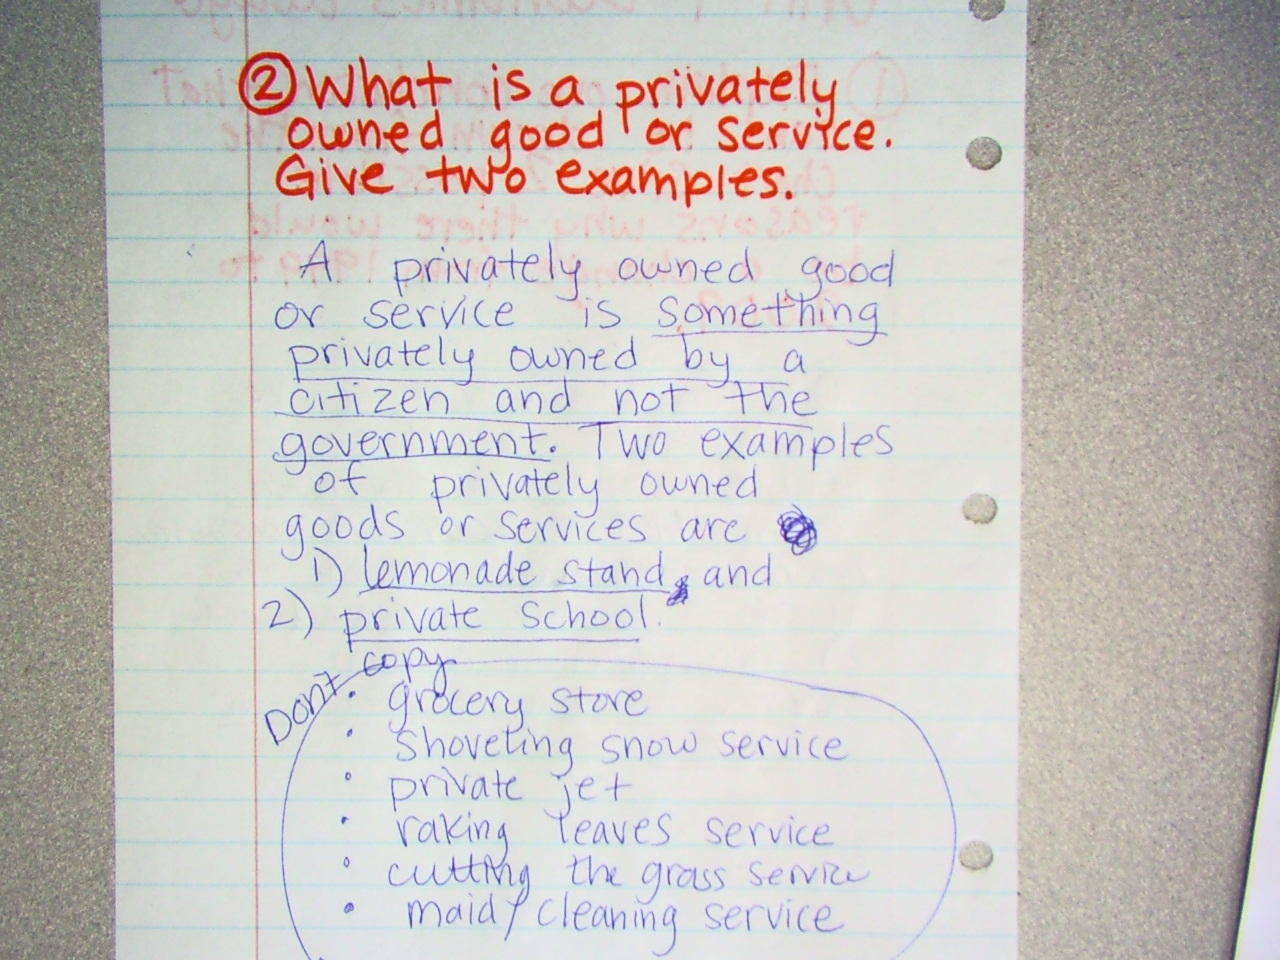 ② What is a privately
owned good or service.
Give two examples.
A privately owned good
or service is something
privately owned by a
citizen and not the
government. Two examples
of privately owned
goods or services are
1) lemonade stand, and
2) private School.
Don't copy
• grocery store
• Shoveling snow service
• private jet
• raking leaves service
• cutting the grass service
• maid/cleaning service